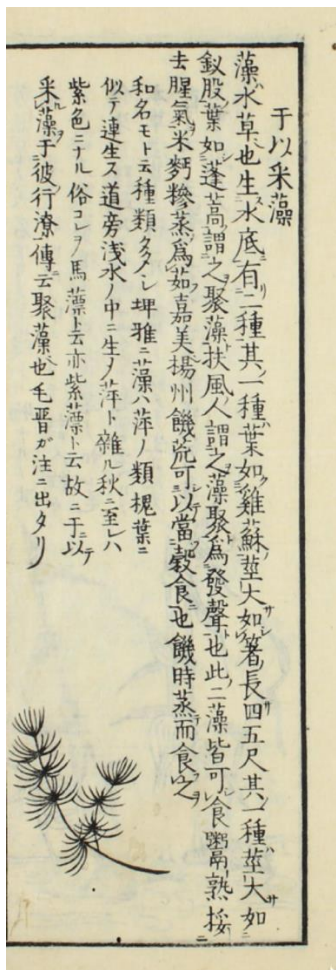 于以采藻
藻ハ水草也生ス水底ニ有リ二種其ノ一種ハ葉如ク雞蘇ノ莖大サ如シ箸ノ長四五尺其ノ一種ハ莖大サ如ニ
釵股ノ葉如シ蓬蒿ノ謂之ヲ聚藻ト扶風ノ人謂之ヲ藻聚ト爲發聲也此ノ二藻皆可シ食フ鬻熟挼ニ
去腥氣ヲ米麪糝蒸爲茹ト嘉美揚州饑荒可以テ當ツ穀食ニ也饑時蒸而食フ之ヲ
和名モト云種類多タシ埤雅ニ藻ハ萍ノ類槐葉ニ
似テ連生ス道旁浅水ノ中ニ生ノ萍ト雜ル秋ニ至レハ
紫色ニナル俗コレヲ馬藻ト云亦紫藻ト云故ニ于以テ
采ル藻ヲ于彼ノ行潦ニ傳云聚藻也毛晋ガ注ニ出タリ